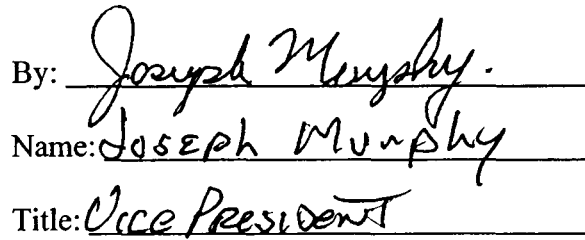 By: Joseph Murphy.
Name: Joseph Murphy
Title: Vice President